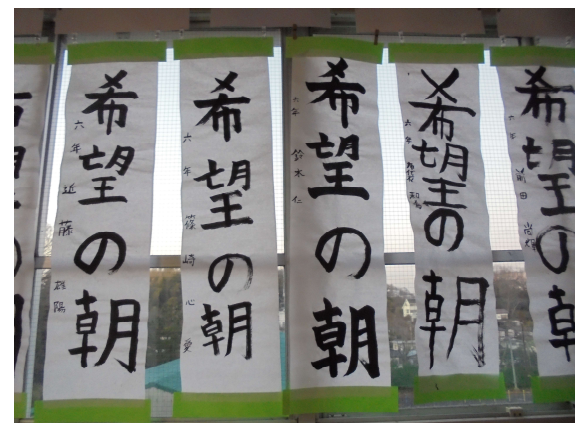 希望の朝
六年 近藤 雄陽
希望の朝
六年 篠崎 心愛
希望の朝
六年 鈴木 仁
希望の朝
六年
希望の朝
六年 前田